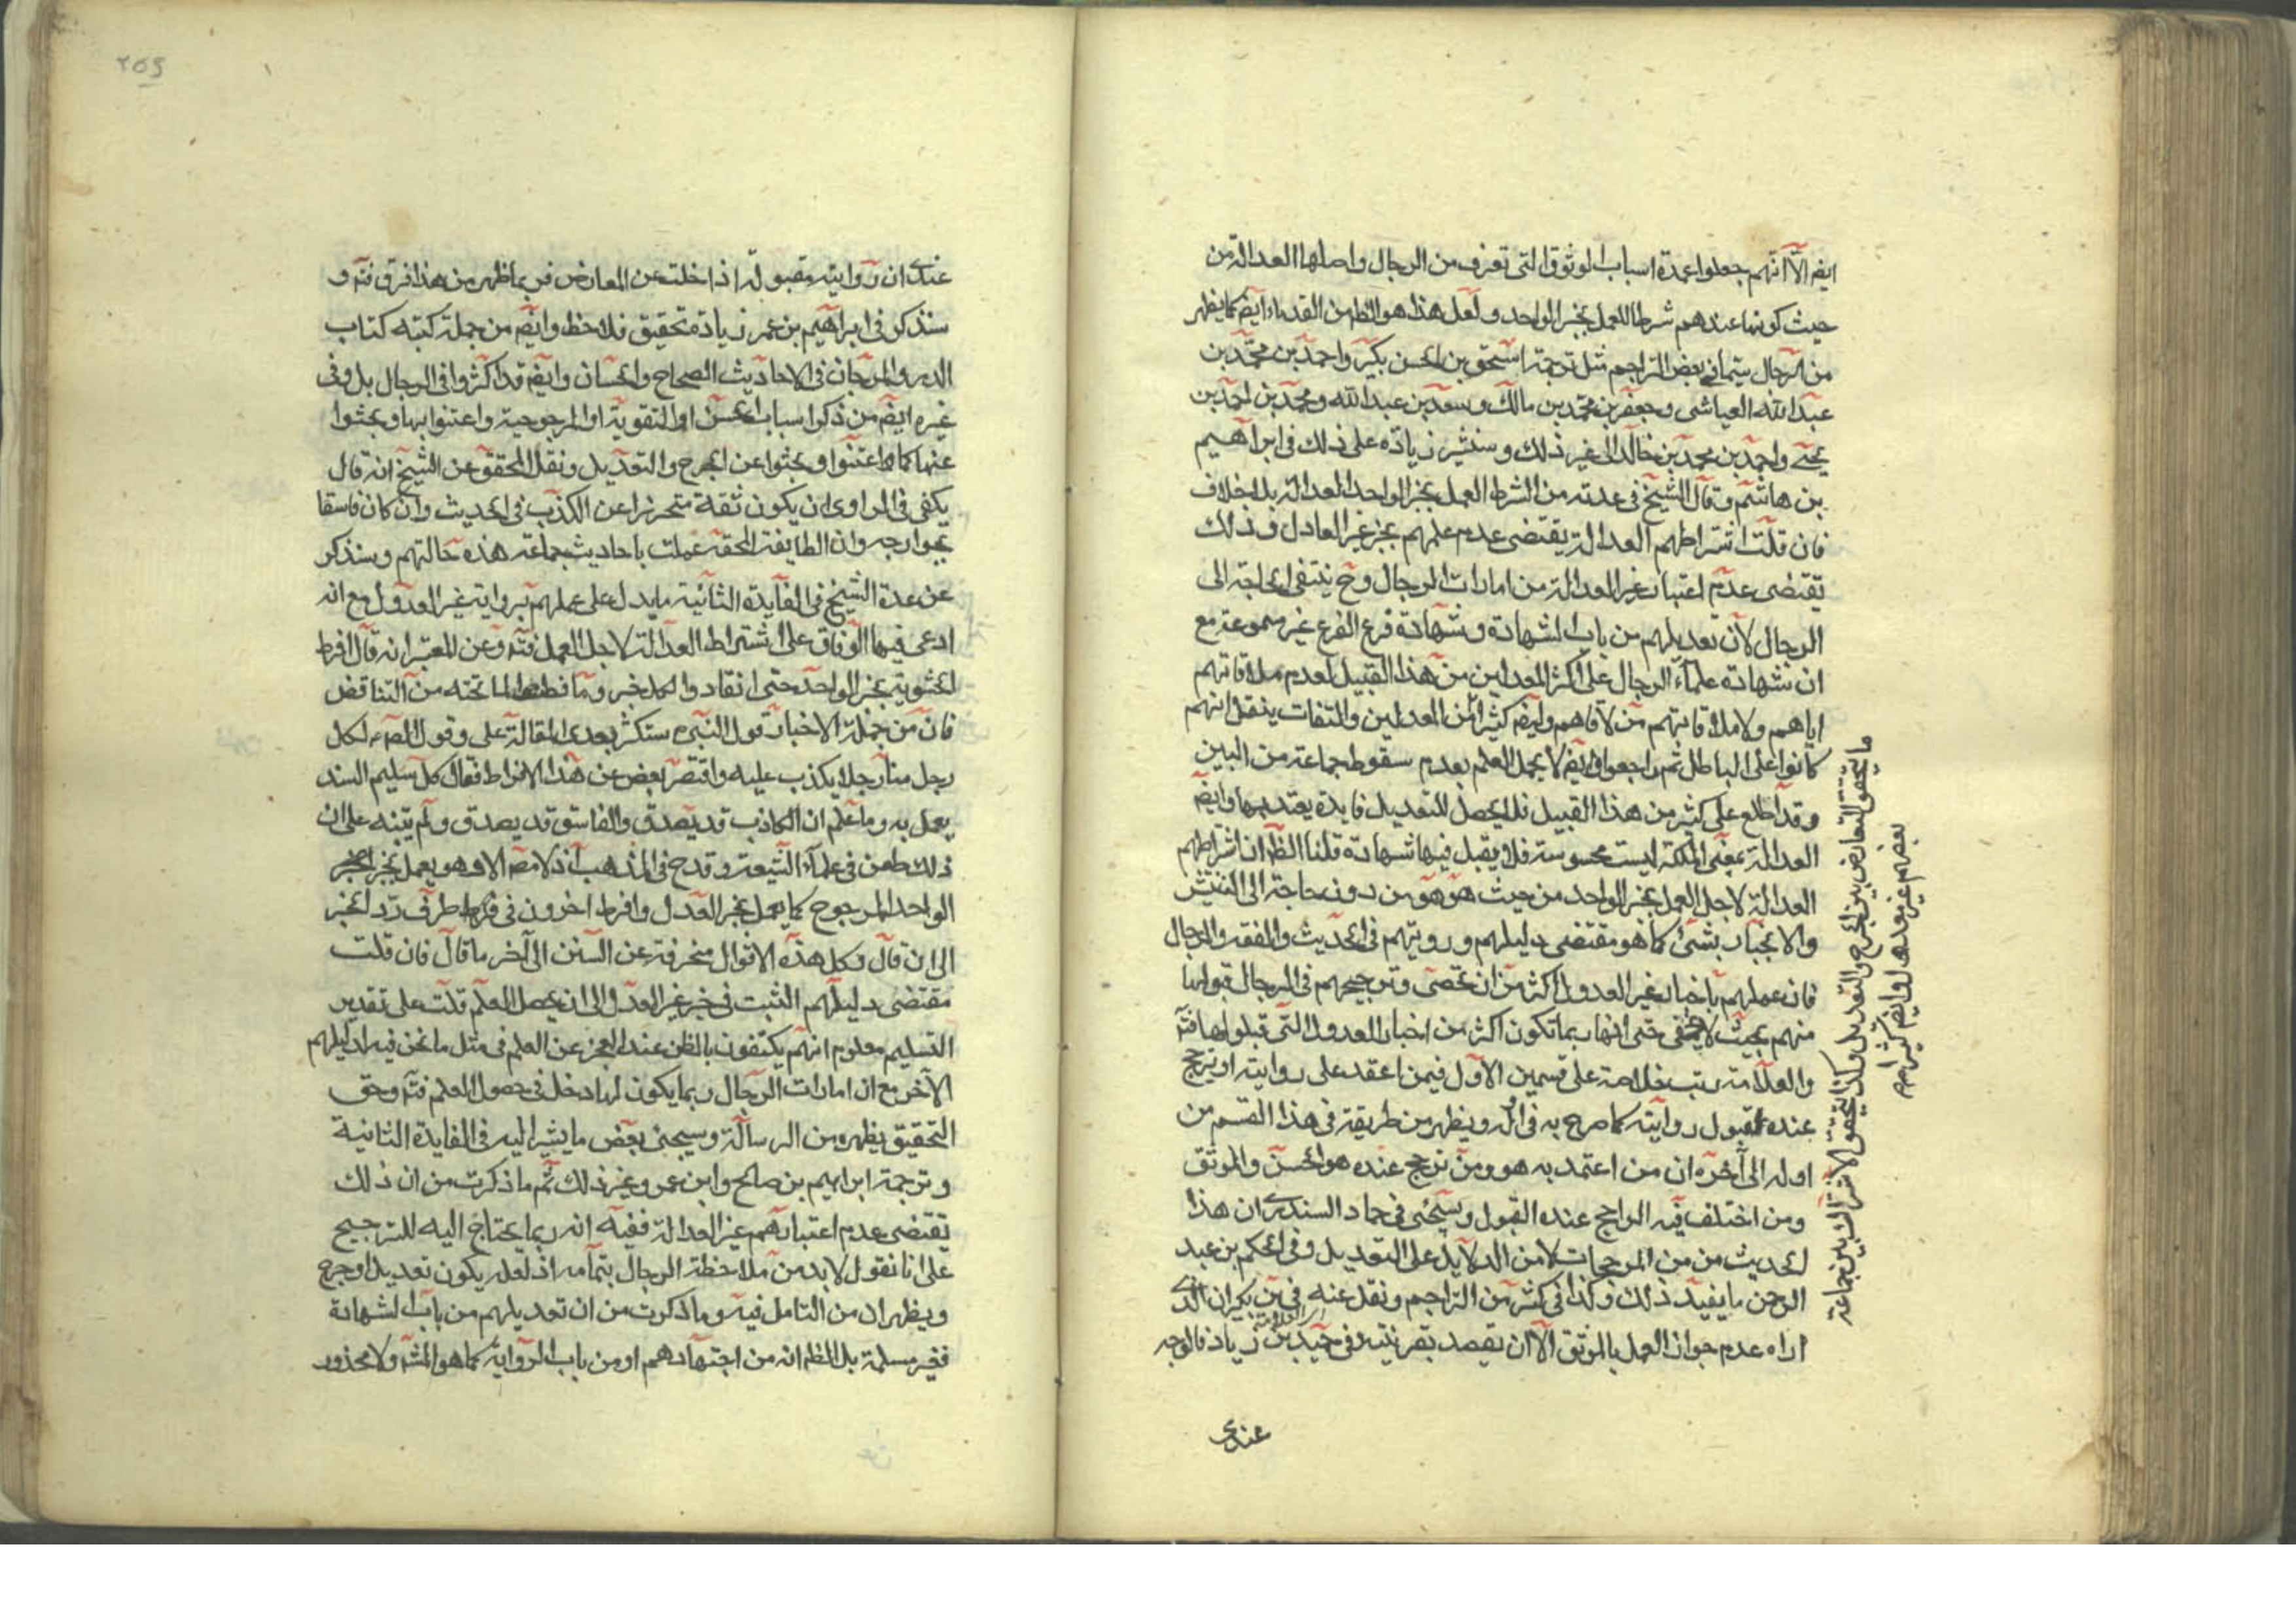 ايضا الا انهم جعلوا عمدة اسباب الوثوق التى تعرف من الرجال واصلها العدالة من
حيث كونها عندهم شرطا للعمل بخبر الواحد ولعل هذا هو الظ من القدماء ايض كما يظهر
من الرجال سيما فى بعض التراجم مثل ترجمة اسحق بن الحسن بن بكير واحمد بن محمد بن
عبد الله العياشى وجعفر بن محمد بن مالك وسعد بن عبد الله ومحمد بن احمد بن
يحيى واحمد بن محمد بن خالد الى غير ذلك وسنشير زيادة على ذلك فى ابراهيم
بن هاشم وقال الشيخ فى عدته من الشرط العمل بخبر الواحد العدالة بلا خلاف
فان قلت اشتراطهم العدالة يقتضى عدم عملهم بخبر غير العادل وذلك
تقتضى عدم اعتبار غير العدالة من امارات الرجال وح ينتفى الحاجة الى
الرجال لان تعديلهم من باب الشهادة وشهادة فرع الفرع غير مسموعة مع
ان شهادة علماء الرجال على اكثر المعدلين من هذا القبيل لعدم ملاقاتهم
اياهم ولا ملاقاتهم من لاقاهم وايض كثيرا من المعدلين والثقات ينقل انهم
كانوا على الباطل ثم راجعوا وايض لا يحصل العلم بعدم سقوط جماعة من البين
وقد اطلع على كثير من هذا القبيل فلا يحصل للتعديل فايدة يعتد بها وايض
العدالة بمعنى الملكة ليست محسوسة فلا يقبل فيها شهادة قلنا الظ ان اشتراطهم
العدالة لاجل العمل بخبر الواحد من حيث هو هو من دون حاجة الى التفتيش
والانجبار بشئ كما هو مقتضى دليلهم ورويتهم فى الحديث والفقه والرجال
فان عملهم باخبار غير العدول اكثر من ان تحصى وترجيحهم فى الرجال قبولها
منهم بحيث لا يخفى حتى انها ربما تكون اكثر من اخبار العدول التى قبلوها فتم
والعلامة رتب خلاصة على قسمين الاول فيمن اعتمد على روايته او يترجح
عنده قبول روايته كما صرح به فى اوله ويظهر من طريقة فى هذا القسم من
اوله الى آخره ان من اعتمد به هو ومن ترجح عنده هو الحسن والموثق
ومن اختلف فيه الراجح عنده القبول وسيجئ فى حماد السندى ان هذا
الحديث من من المرجحات لا من الدلايل على التعديل وفى الحكم بن عبد
الرحمن ما يفيد ذلك وكذا فى كثير من التراجم ونقل عنه فى بن بكير ان الذى
اراه عدم جواز العمل بالموثق الا ان يعضد بقرينة وفى حميد بن زياد فالوجه
عندى
ما يتحقق التعارض بين الجرح والتعديل وكذا يتحقق الاشتراك بين جماعة
بعضهم غير معدل وايض كثيرا مم
٢٥٩
عندى ان روايته مقبولة اذا خلت عن المعارض فربما ظهر من هذا فرق فتم و
سنذكر فى ابراهيم بن عمر زيادة تحقيق فلاحظ وايض من جملة كتبه كتاب
الدر والمرجان فى الاحاديث الصحاح والحسان وايض قد اكثروا فى الرجال بل وفى
غيره ايض من ذكر اسباب الحسن او التقوية او المرجوحية واعتنوا بها وبحثوا
عنها كما اعتنوا وبحثوا عن الجرح والتعديل ونقل المحقق عن الشيخ انه قال
يكفى فى الراوى ان يكون ثقة متحرزا عن الكذب فى الحديث وان كان فاسقا
بجوارحه وان الطايفة المحقه عملت باحاديث جماعة هذه حالتهم وسنذكر
عن عدة الشيخ فى الفايدة الثانية ما يدل على عملهم برواية غير العدول مع انه
ادعى فيها الوفاق على اشتراط العدالة لاجل العمل فتم وعن المعتبر انه قال افرط
الحشوية بخبر الواحد حتى انقادوا لكل خبر وما فطنوا لما تحته من التناقض
فان من جملة الاخبار قول النبى ص ستكثر بعدى القالة على وقول الص ع لكل
رجل منا رجل يكذب عليه واقتصر بعض عن هذا الافراط فقال كل سليم السند
يعمل به وما علم ان الكاذب قد يصدق والفاسق قد يصدق ولم يتنبه على ان
ذلك طعن فى علماء الشيعة وقدح فى المذهب اذ لا مصنف الا وهو يعمل بخبر
الواحد المرجوح كما يعمل بخبر العدل وافرط اخرون فى طرف رد الخبر
الى ان قال وكل هذه الاقوال منحرفة عن السنن الى آخر ما قال فان قلت
مقتضى دليلهم التثبت فى خبر غير العدول الى ان يحصل العلم قلت على تقدير
التسليم معلوم انهم يكتفون بالظن عند العجز عن العلم فى مثل ما نحن فيه لدليلهم
الآخر مع ان امارات الرجال ربما يكون لها دخل فى حصول العلم فتم وحق
التحقيق يظهر من الرسالة وسيجئ بعض ما يشير اليه فى الفايدة الثانية
وترجمة ابراهيم بن صالح وابن عمر وغير ذلك ثم ما ذكرت من ان ذلك
تقتضى عدم اعتبارهم غير العدالة ففيه انه ربما يحتاج اليه للترجيح
على انا نقول لا بد من ملاحظة الرجال بتمامه اذ لعله يكون تعديل او جرح
ويظهر ان من التامل فيه وما ذكرت من ان تعديلهم من باب الشهادة
فغير مسلمة بل الظ انه من اجتهادهم او من باب الرواية كما هو المش ولا محذور